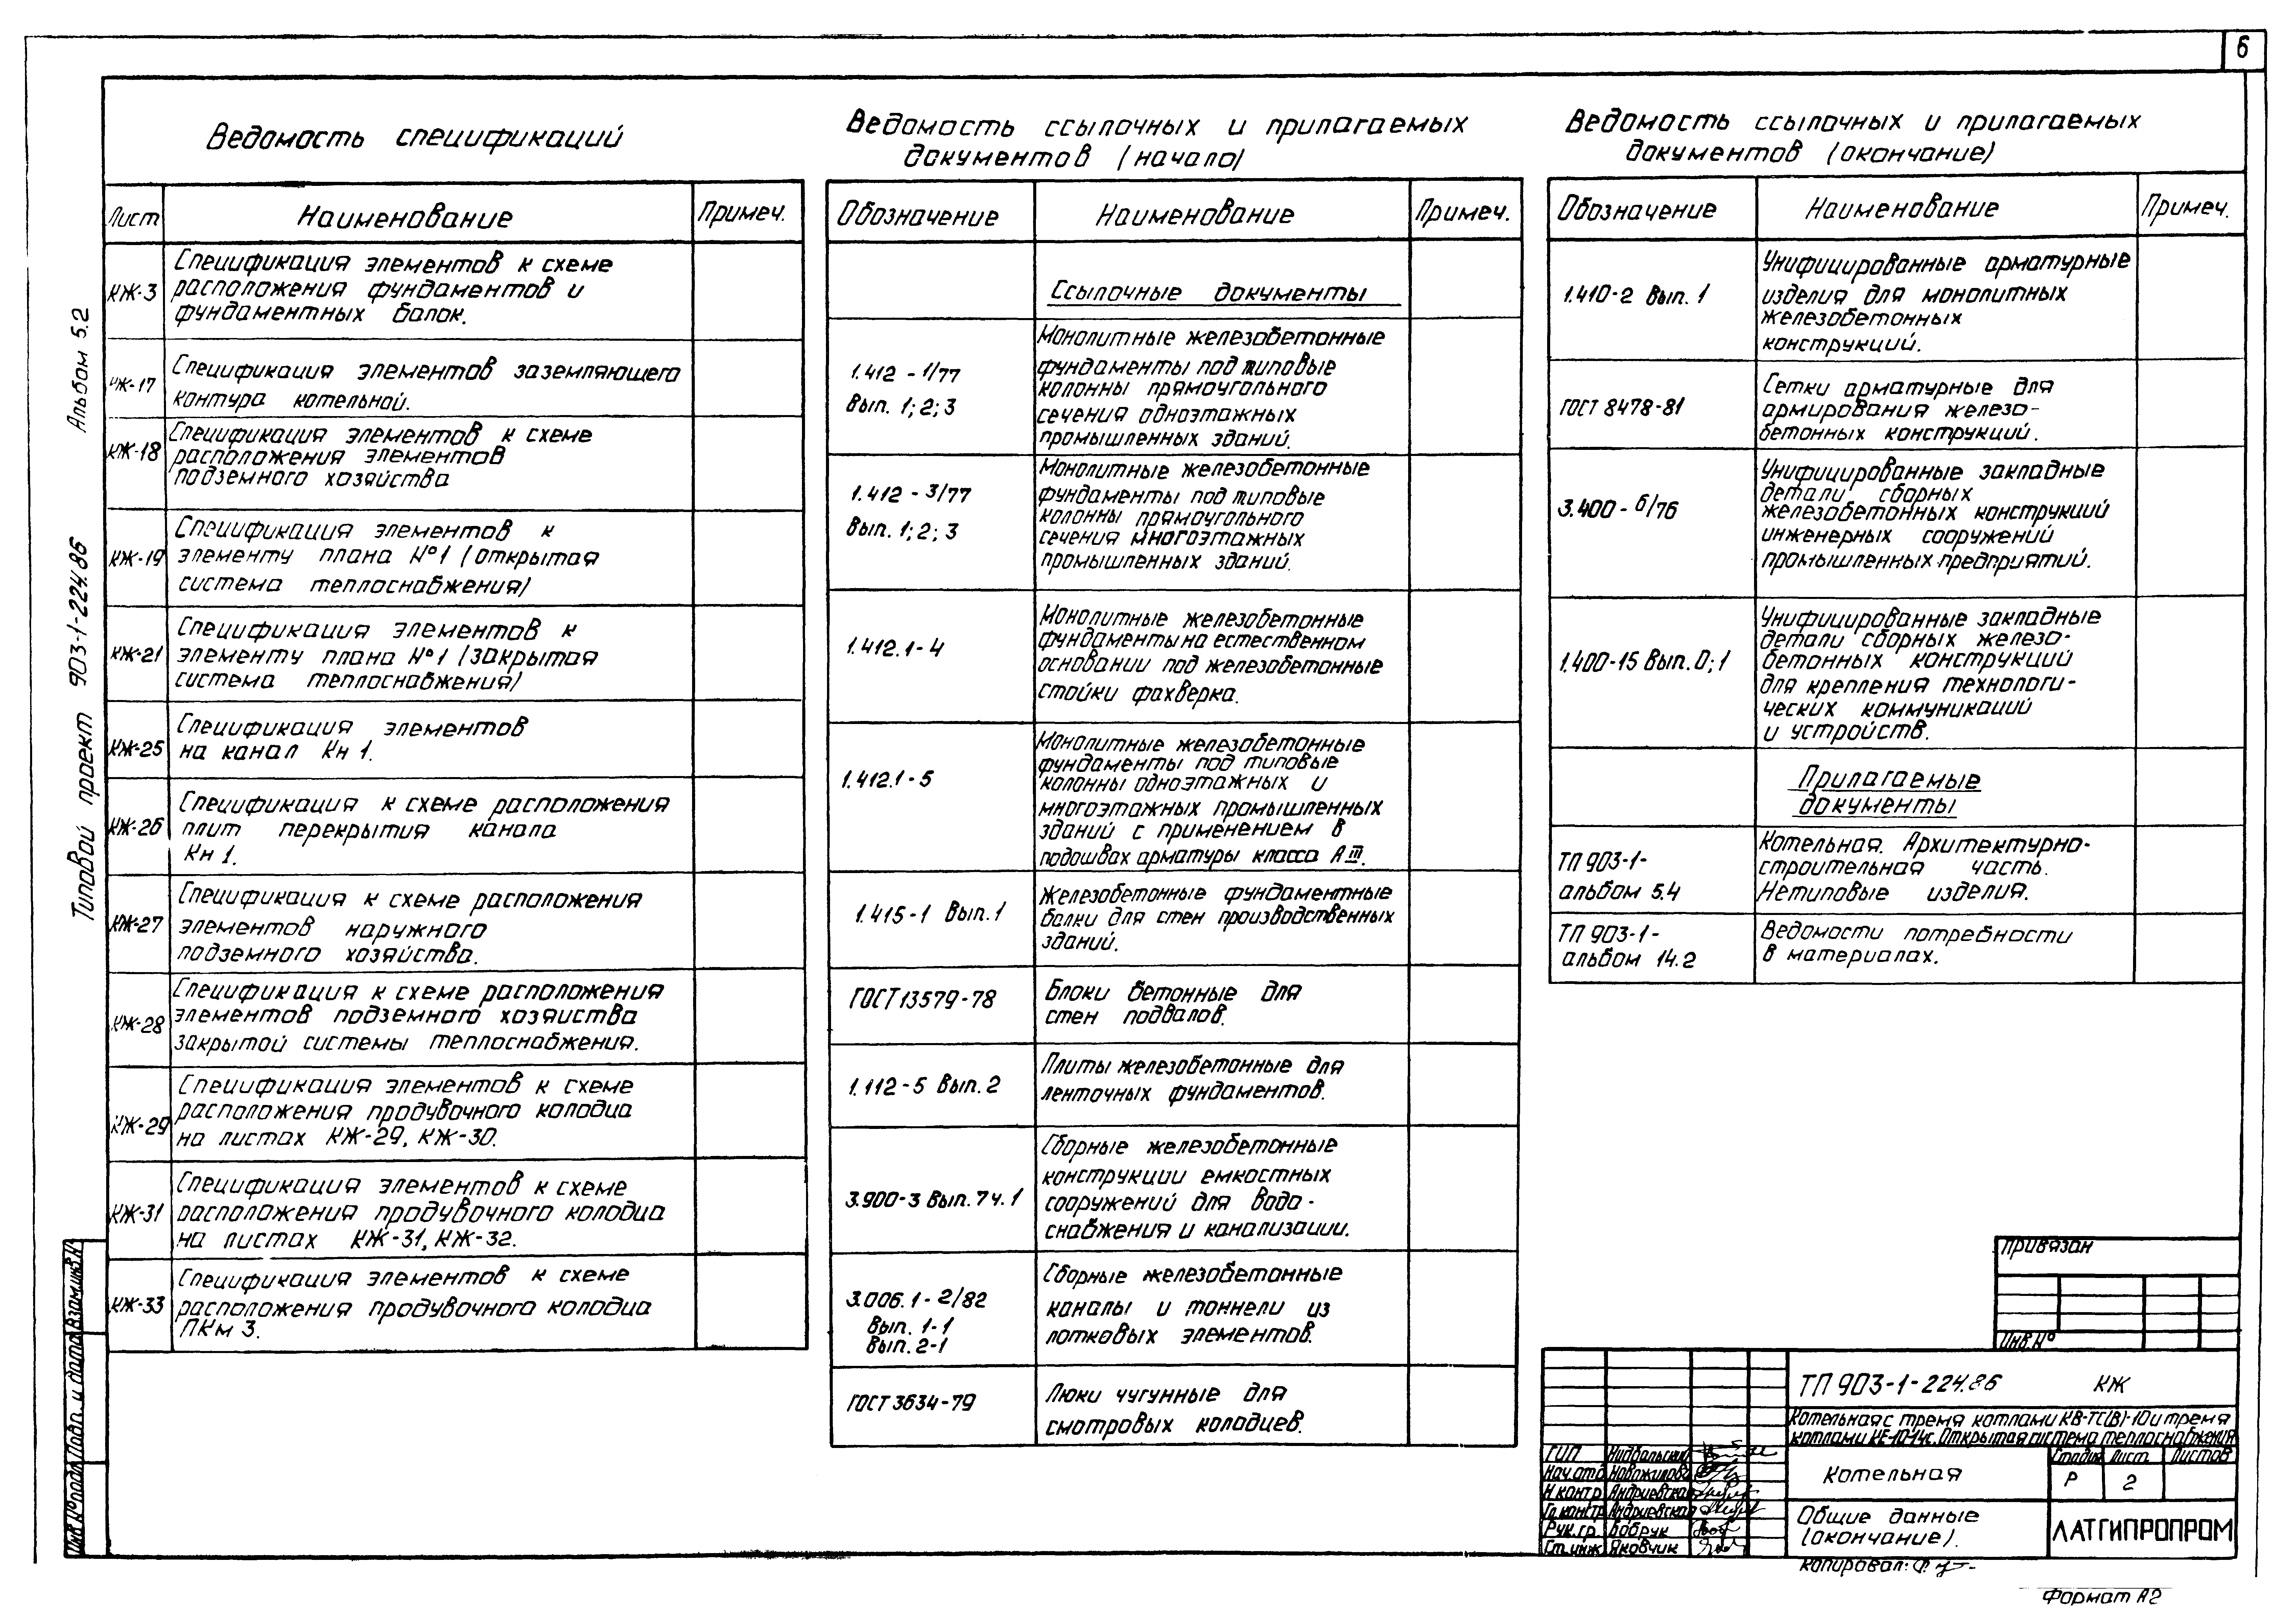 6
Ведомость спецификаций
Лист
Наименование
Примеч.
КЖ-3
Спецификация элементов к схеме
расположения фундаментов и
фундаментных балок.
КЖ-17
Спецификация элементов заземляющего
контура котельной.
КЖ-18
Спецификация элементов к схеме
расположения элементов
подземного хозяйства
КЖ-19
Спецификация элементов к
элементу плана №1 (открытая
система теплоснабжения)
КЖ-21
Спецификация элементов к
элементу плана №1 (закрытая
система теплоснабжения)
КЖ-25
Спецификация элементов
на канал Кн 1.
КЖ-26
Спецификация к схеме расположения
плит перекрытия канала
Кн 1.
КЖ-27
Спецификация к схеме расположения
элементов наружного
подземного хозяйства.
КЖ-28
Спецификация к схеме расположения
элементов подземного хозяйства
закрытой системы теплоснабжения.
КЖ-29
Спецификация элементов к схеме
расположения продувочного колодца
на листах КЖ-29, КЖ-30.
КЖ-31
Спецификация элементов к схеме
расположения продувочного колодца
на листах КЖ-31, КЖ-32.
КЖ-33
Спецификация элементов к схеме
расположения продувочного колодца
ПКм 3.
Ведомость ссылочных и прилагаемых
документов (начало)
Обозначение
Наименование
Примеч.
Ссылочные документы
1.412 - 1/77
Вып. 1; 2; 3
Монолитные железобетонные
фундаменты под типовые
колонны прямоугольного
сечения одноэтажных
промышленных зданий.
1.412 - 3/77
Вып. 1; 2; 3
Монолитные железобетонные
фундаменты под типовые
колонны прямоугольного
сечения многоэтажных
промышленных зданий.
1.412.1-4
Монолитные железобетонные
фундаменты на естественном
основании под железобетонные
стойки фахверка.
1.412.1-5
Монолитные железобетонные
фундаменты под типовые
колонны одноэтажных и
многоэтажных промышленных
зданий с применением в
подошвах арматуры класса АIII.
1.415-1 Вып.1
Железобетонные фундаментные
балки для стен производственных
зданий.
ГОСТ 13579-78
Блоки бетонные для
стен подвалов.
1.112-5 Вып. 2
Плиты железобетонные для
ленточных фундаментов.
3.900-3 Вып. 7 ч. 1
Сборные железобетонные
конструкции емкостных
сооружений для водо-
снабжения и канализации.
3.006.1-2/82
Вып. 1-1
Вып. 2-1
Сборные железобетонные
каналы и тоннели из
лотковых элементов.
ГОСТ 3634-79
Люки чугунные для
смотровых колодцев.
Ведомость ссылочных и прилагаемых
документов (окончание)
Обозначение
Наименование
Примеч.
1.410-2 Вып. 1
Унифицированные арматурные
изделия для монолитных
железобетонных
конструкций.
ГОСТ 8478-81
Сетки арматурные для
армирования железо-
бетонных конструкций.
3.400-6/76
Унифицированные закладные
детали сборных
железобетонных конструкций
инженерных сооружений
промышленных предприятий.
1.400-15 Вып. 0; 1
Унифицированные закладные
детали сборных железо-
бетонных конструкций
для крепления технологи-
ческих коммуникаций
и устройств.
Прилагаемые
документы
ТП 903-1-
альбом 5.4
Котельная. Архитектурно-
строительная часть.
Нетиповые изделия.
ТП 903-1-
альбом 14.2
Ведомости потребности
в материалах.
Типовой проект 903-1-224.86 Альбом 5.2
Инв.№подл. Подп. и дата Взам.инв.№
Привязан
Инв.№
ТП 903-1-224.86 КЖ
Котельная с тремя котлами КВ-ТС(В)-10 и тремя
котлами КЕ-10-14с. Открытая система теплоснабжения
ГИП
Нач.отд. Новожилова
Н.контр. Андриевская
Гл.констр. Андриевская
Рук.гр. Бобрук
Ст.инж. Яковчик
Котельная
Стадия Лист Листов
Р 2
Общие данные
(окончание).
ЛАТГИПРОПРОМ
Копировал:
Формат А2